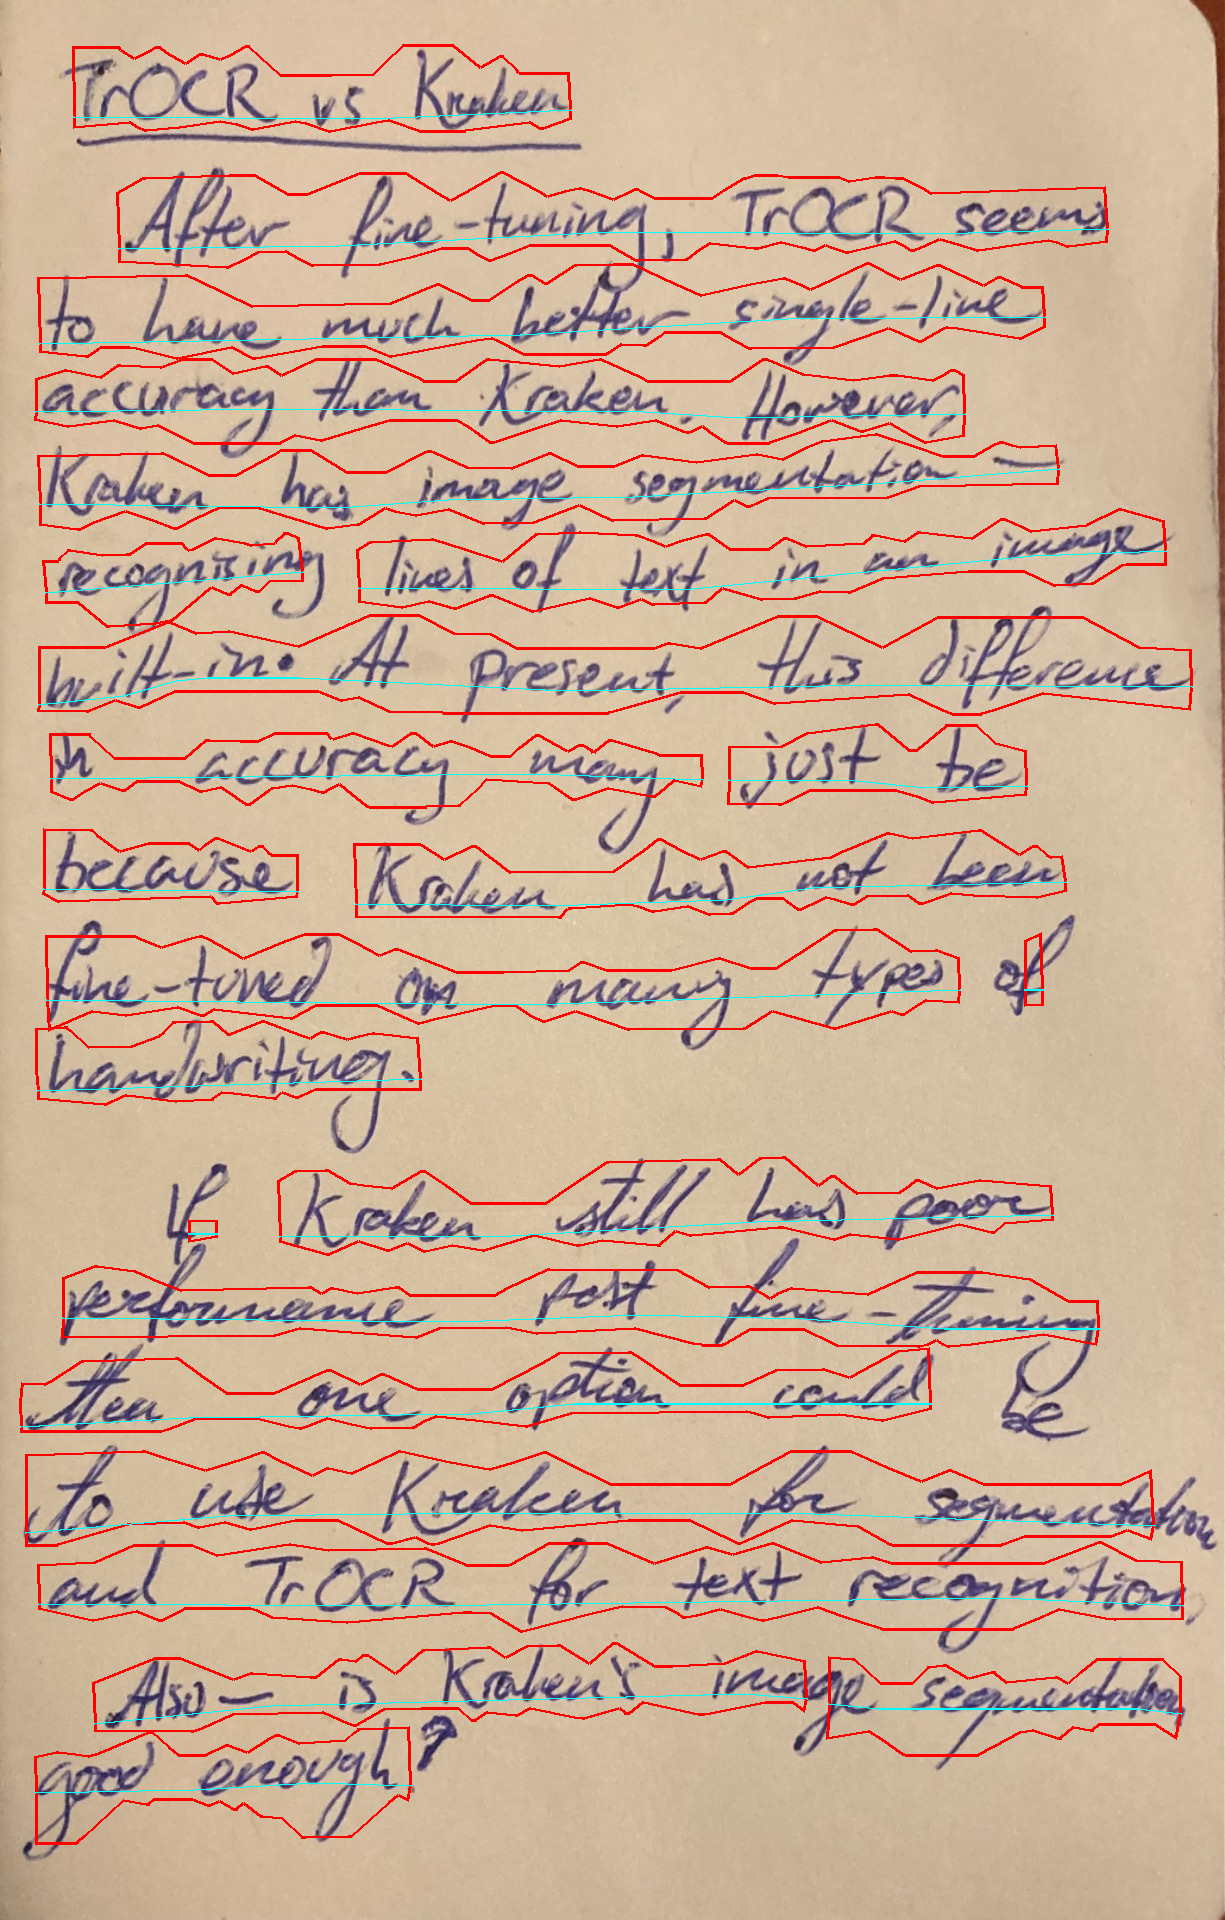 TrOCR vs Kraken
After fine-tuning, TrOCR seems
to have much better single-line
accuracy than Kraken. However,
Kraken has image segmentation —
recognising lines of text in an image
built-in. At present, this difference
in accuracy many just be
because Kraken has not been
fine-tuned on many types of
handwriting.
If Kraken still has poor
performance post fine-tuning
then one option could be
to use Kraken for segmentation
and TrOCR for text recognition.
Also — is Kraken's image segmentation
good enough?